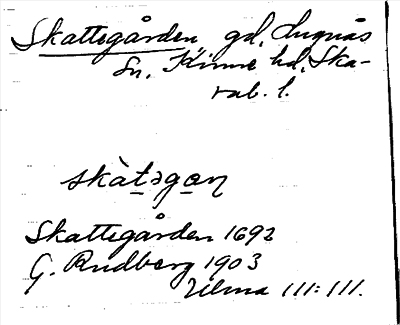 Skattegården, gd, Lugnås
Sn. Kinne hd. Ska-
rab. l.
skàtəgɑn
Skattegården 1692
G. Rudberg 1903
Uelma III: III.